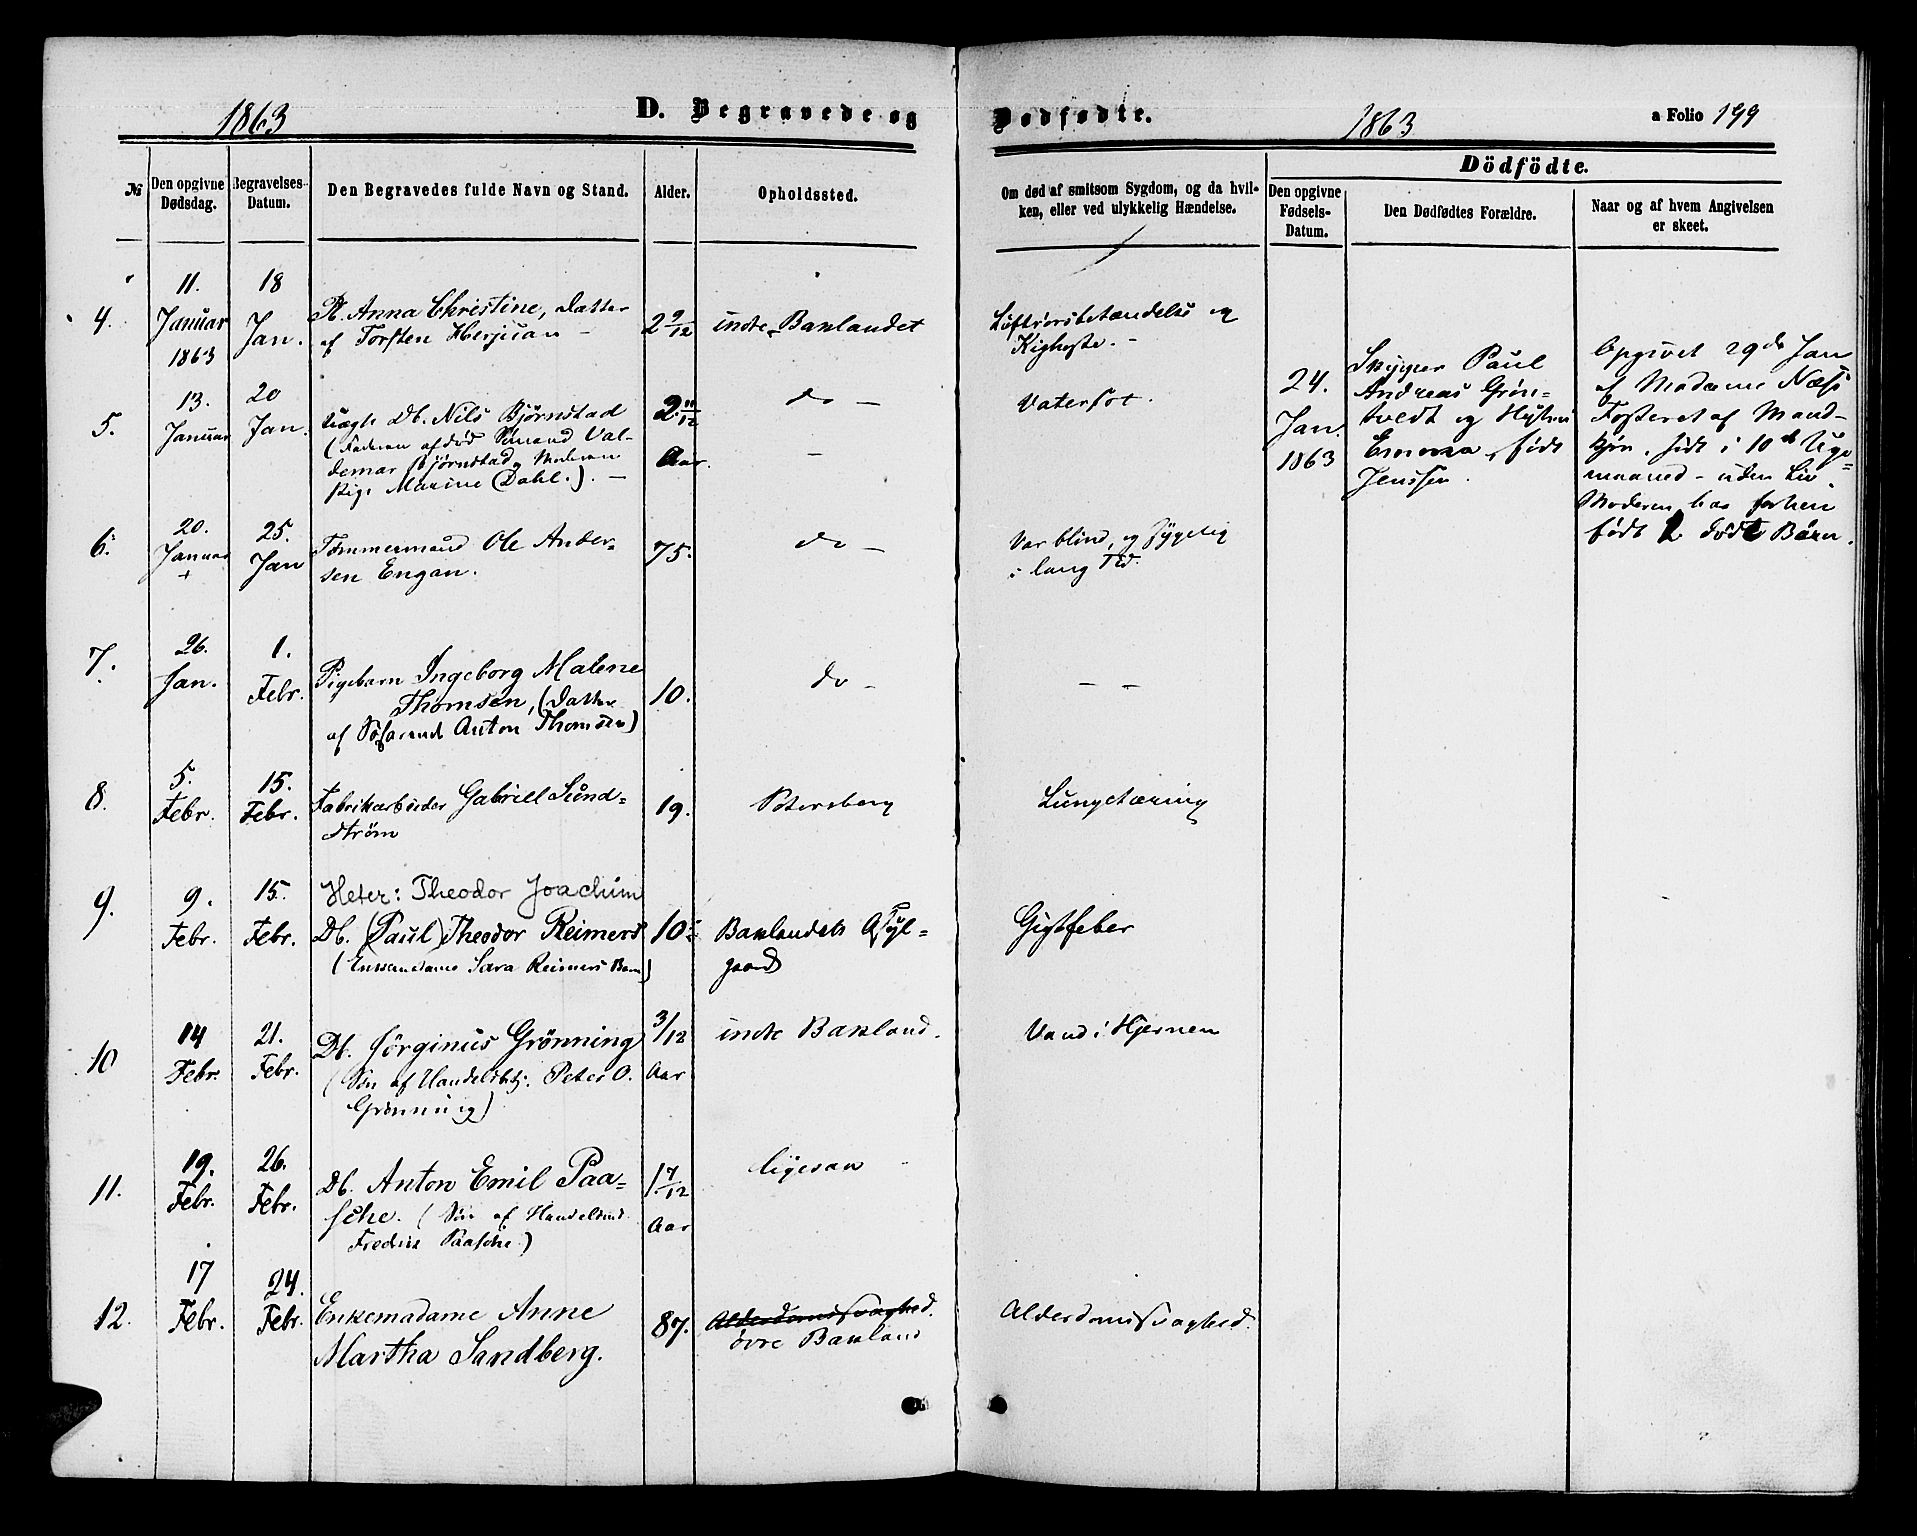 1863
D. Begravede og
№
Den opgivne Dødsdag.
Begravelses-Datum.
Den Begravedes fulde Navn og Stand.
Alder.
Opholdssted.
4.
11.
Januar
1863
18
Jan.
Pb. Anna Christine, Datter
af Torsten Herjuan
2 9/12
indre Baklandet
5.
13.
Januar
20
Jan.
uægte Db. Nils Bjørnstad
(Faderen afdød Sömand Val-
demar Bjørnstad, Moderen
Pige Maxine Dahl.). —
2 11/12
Aar.
do —
6.
20.
Januar
+
25.
Jan
Tømmermand Ole Ander-
sen Engan.
75.
do —
7.
26.
Jan.
1.
Febr.
Pigebarn Ingeborg Malene
Thomsen, (Datter
af Søfarende Anton Thomsen)
10.
do -
8.
5.
Febr.
15.
Febr.
Fabrikarbeider Gabriell Sund=
ström
19.
Petersberg
9.
9.
Febr.
15.
Febr.
Heter: Theodor Joachim
Db. (Paul) Theodor Reimers
(Enkemadame Sara Reimers Barn)
10
Baklandets Asyl-
gaard
10
14
Febr.
21.
Febr.
Db. Jörginus Grönning
(Søn af Handelsbetj. Peter O.
Grönning)
3/12
Aar
indre Bakland.
11.
19.
Febr.
26.
Febr.
Db. Anton Emil Paa=
sche. (Søn af Handelsmd.
Fredrik Paasche.)
1 7/12
Aar
ligesaa
12.
17
Febr.
24.
Febr.
Enkemadame Anne
Martha Sandberg.
87.
Alderdomssvaghed.
øvre Bakland
Dødfødte.
1863
a Folio 199
Om død af smitsom Sygdom, og da hvil-
ken, eller ved ulykkelig Hændelse.
Dödfödte.
Den opgivne Fødsels-Datum.
Den Dødfødtes Forældre.
Naar og af hvem Angivelsen
er skeet.
Luftrørsbetændelse og
Kighoste. -
Vatersot.
Var blind, og sygelig
i lang Tid.
— —
Lungetæring
Gigtfeber
Vand i Hjernen
Alderdomssvaghed.
24.
Jan.
1863
Skipper Paul
Andreas Grön-
tvedt og Hustru
Emma, født
Jenssen.
Opgivet 29de Jan
af Madame Næss
Fosteret af Mand-
kjön, født i 10de Uge-
maaned - uden Liv.
Moderen har forhen
født 2 døde Börn.